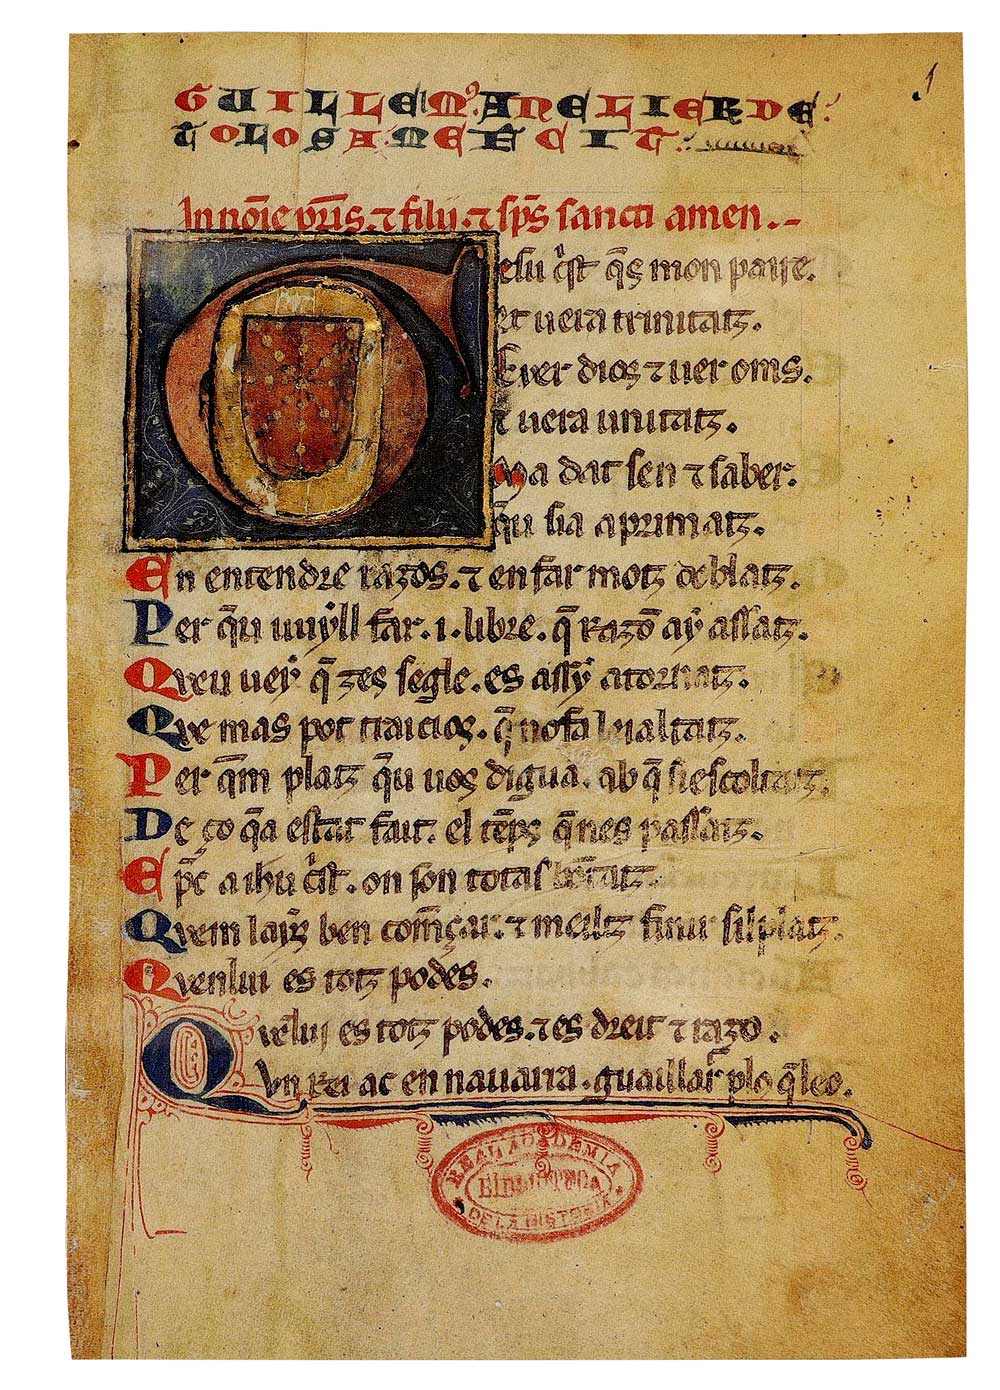 GUILLEM9 ANELIER DE
TOLOSA ME FECIT
In noīe pr̄is. ⁊ filij. ⁊ sp̄s sancti amen.
esu c̓st q̄s mon paire.
Et uera trinitatz.
E uer dios ⁊ uer oms.
Et uera unitatz.
Ma dat sen ⁊ saber.
q̄u sia aprimatz.
En entendre razos. ⁊ en far motz doblatz.
Per q̄u uuyll far. i. libre. q̄ razō ay assatz.
Queu uey q̄ zes segle. es assy atornatz.
Que mas pot traicios. q̄ no fa leialtatz.
Per q̄m platz q̄u uos digua. ab q̄ si escoltatz.
De ço q̄a estat fait. el tēps q̄nes passatz.
E p̄c a ihu c̓st. on son totas bōtatz.
Quem layx ben comēçar. ⁊ meilz finir sil platz.
Quenlui es totz podes.
Quēlui es totz podes. ⁊ es dreit ⁊ razo.
Un rei ac en nauarra. guaillart plo q̄ leo.
REAL ACADEMIA
BIBLIOTECA
DE LA HISTORIA